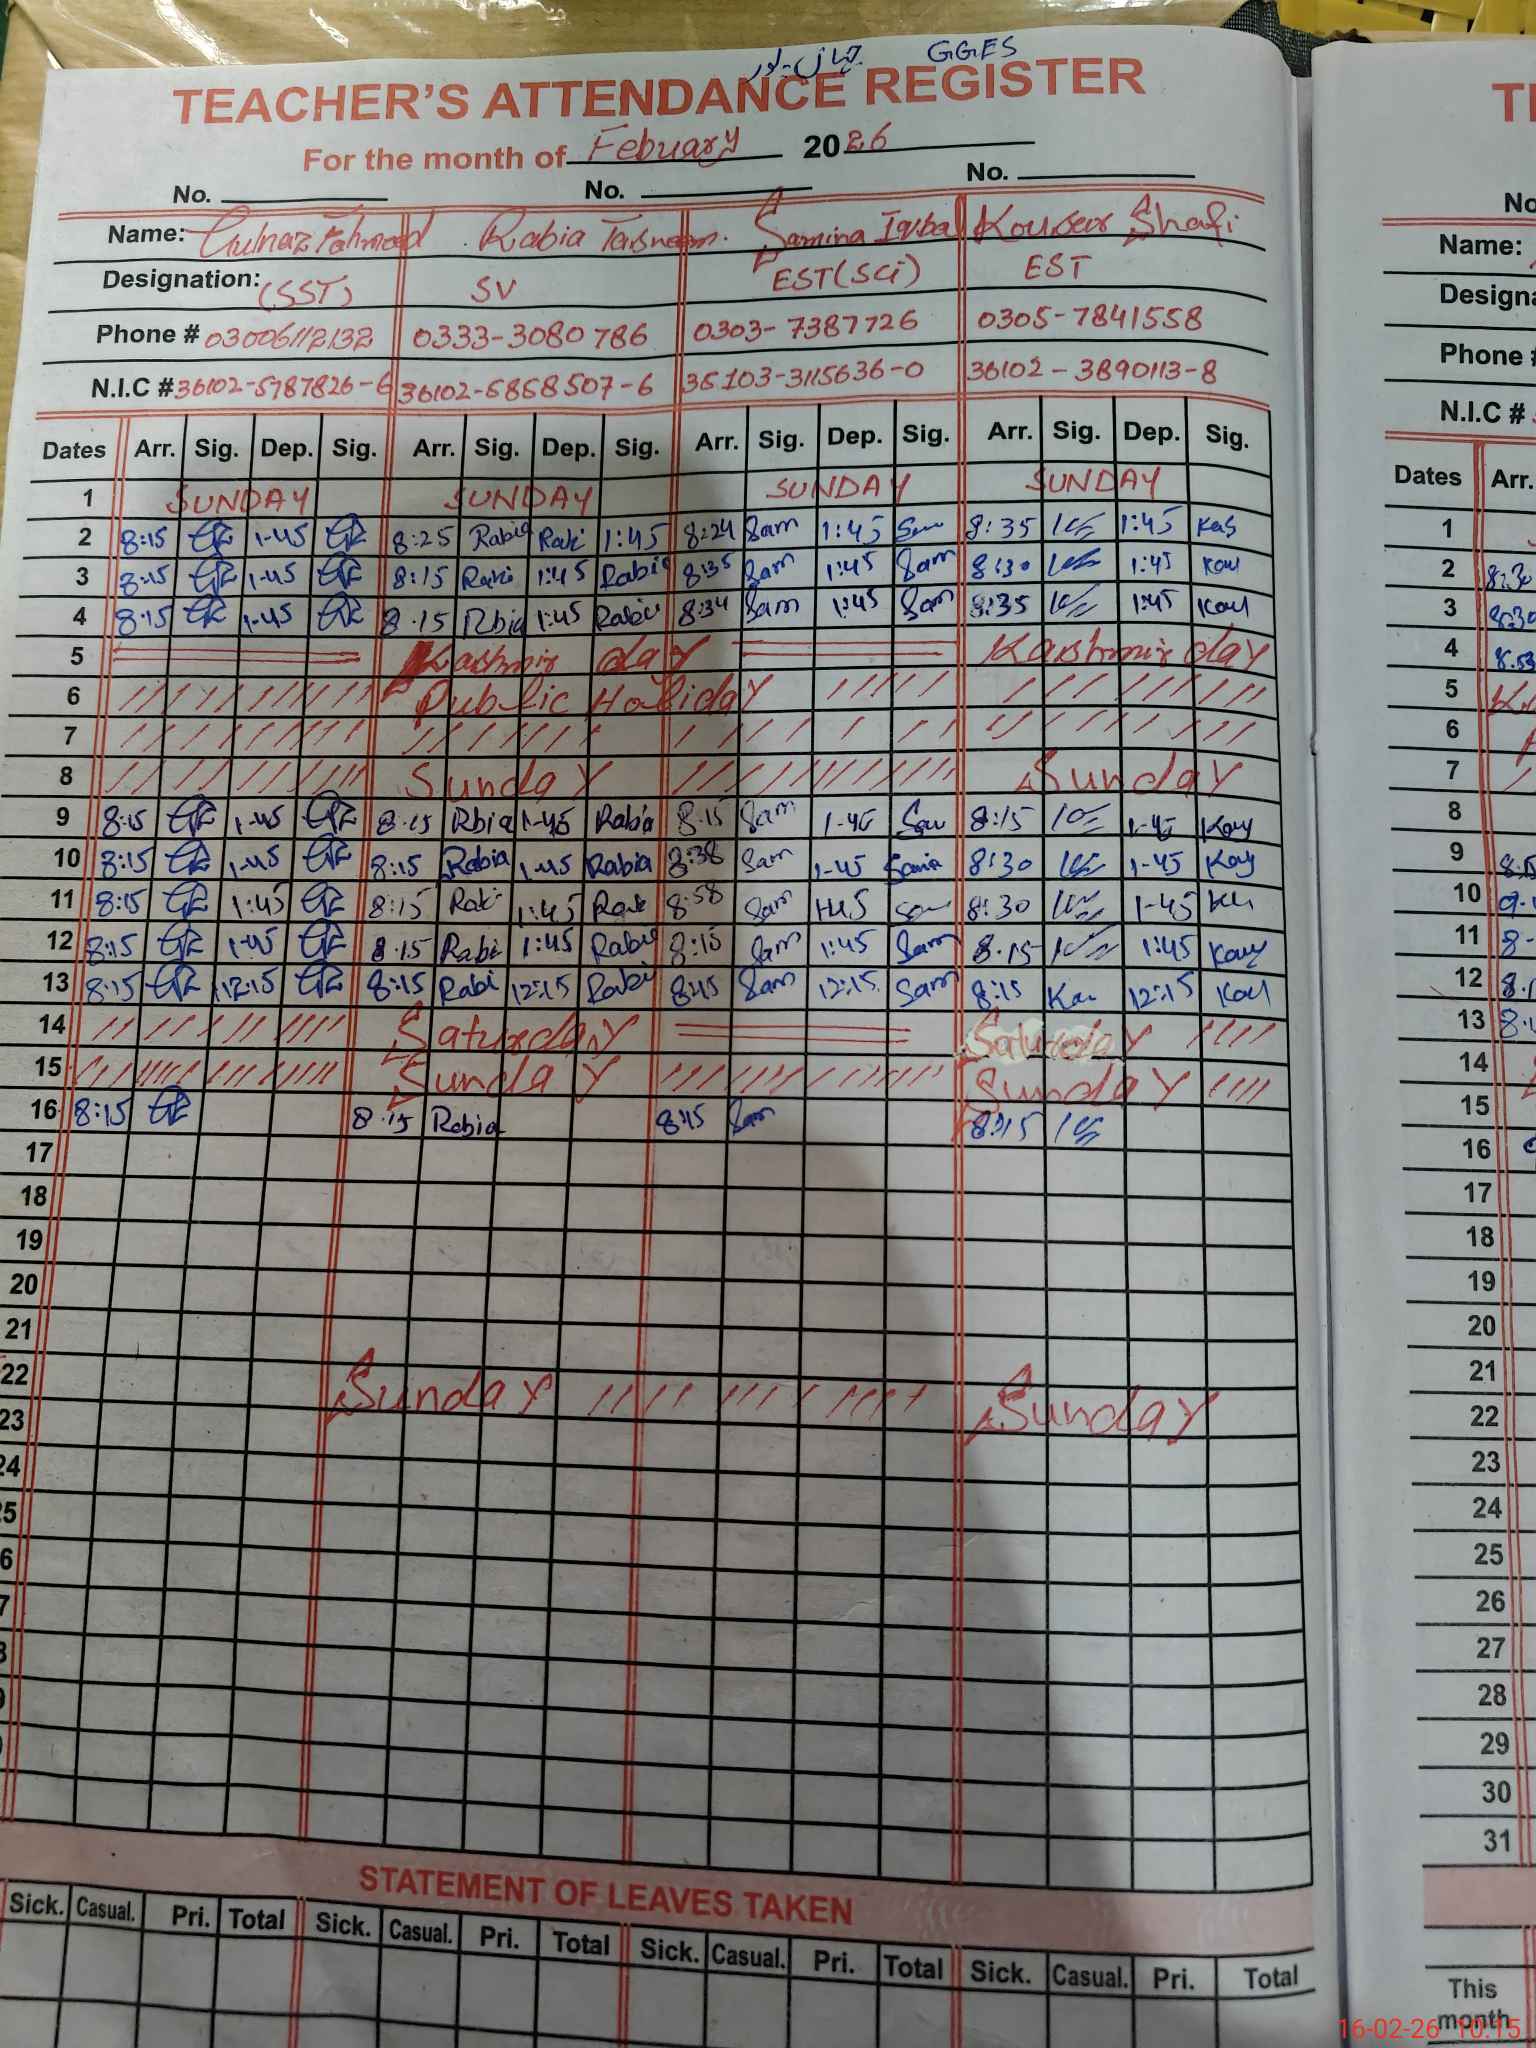 GGES
TEACHER'S ATTENDANCE REGISTER
For the month of Febuary 2026
No. No. No.
Name: Gulnaz Rabia Tasneem. Samina Iqbal Kousar Shafi
Designation: (SST) SV EST(SCi) EST
Phone # 03006112132 0333-3080786 0303-7387726 0305-7841558
N.I.C # 36102-5787826-6 36102-5858507-6 35103-3115636-0 36102-3890113-8
Dates Arr. Sig. Dep. Sig. Arr. Sig. Dep. Sig. Arr. Sig. Dep. Sig. Arr. Sig. Dep. Sig.
1 SUNDAY SUNDAY SUNDAY SUNDAY
2 8:15 1-45 8:25 Rabia Rabi 1:45 8:24 Sam 1:45 Sam 8:35 1:45 Kas
3 8:15 1-45 8:15 Rabi 1:45 Rabia 8:35 Sam 1:45 Sam 8:30 1:45 Kou
4 8:15 1-45 8.15 Rbia 1:45 Rabia 8:34 Sam 1:45 Sam 8:35 1:45 Kou
5 Kashmir day Kashmir day
6 Public Holiday
7
8 Sunday Sunday
9 8:15 1-45 8.15 Rbia 1-45 Rabia 8.15 Sam 1-45 Sam 8:15 1-45 Kou
10 8:15 1-45 8:15 Rabia 1-45 Rabia 8:38 Sam 1-45 8:30 1-45 Kou
11 8:15 1:45 8:15 Rabi 1:45 8:58 Sam 8:30 1-45
12 8:15 1-45 8.15 Rabi 1:45 Rabi 8:15 Sam 1:45 Sam 8.15 1:45 Kou
13 8:15 12:15 8:15 Rabi 12:15 Rabi 8:15 Sam 12:15 Sam 8:15 12:15 Kou
14 Saturday Saturday
15 Sunday Sunday
16 8:15 8.15 Rabia 8:15 Sam 8:15
17
18
19
20
21
22 Sunday Sunday
23
24
25
6
7
STATEMENT OF LEAVES TAKEN
Sick. Casual. Pri. Total Sick. Casual. Pri. Total Sick. Casual. Pri. Total Sick. Casual. Pri. Total
No
Name:
Design
Phone #
N.I.C #
Dates Arr.
1
2 8:30
3 8:30
4 8.53
5
6
7
8
9
10
11
12
13
14
15
16
17
18
19
20
21
22
23
24
25
26
27
28
29
30
31
This
month
16-02-26 10:15